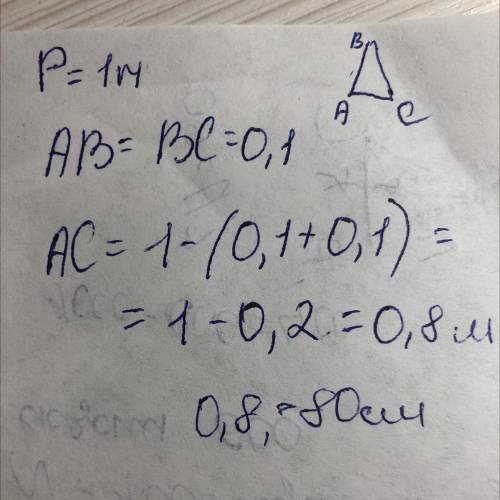 P = 1м
B
A
C
AB = BC = 0,1
AC = 1 - (0,1 + 0,1) =
= 1 - 0,2 = 0,8 м
0,8, = 80 см